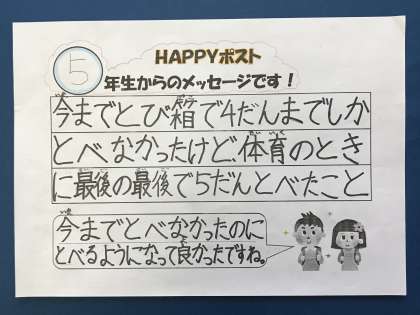 HAPPYポスト
5
年生からのメッセージです！
今までとび箱で4だんまでしか
とべなかったけど、体育のとき
に最後の最後で5だんとべたこと
今までとべなかったのに
とべるようになって良かったですね。